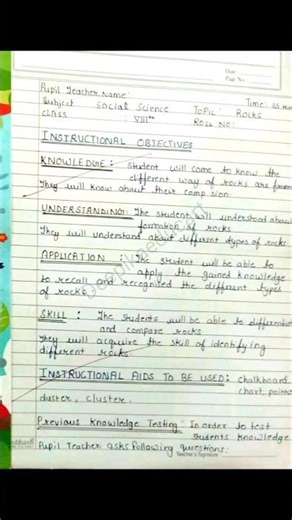 Date
Page No.
Pupil Teacher Name: Time: 35 min
Subject Social Science Topic: Rocks
Class : VIIIth Roll No:
INSTRUCTIONAL OBJECTIVES
KNOWLEDGE: Student will come to know the
different way of rocks are form
They will know about their com sion.
UNDERSTANDING: The student will understand about
formation of rocks
They will understand about different types of rocks
APPLICATION : The student will be able to
apply the gained knowledge
to recall and recognised the different types
of rocks.
SKILL : The students will be able to differentia
and compare rocks
They will acquire the skill of identifying
different rocks.
INSTRUCTIONAL AIDS TO BE USED: chalkboard
chart, point
duster, cluster.
Previous Knowledge Testing: In order to test
students knowledge
Pupil Teacher asks following questions:
Teacher's Signature